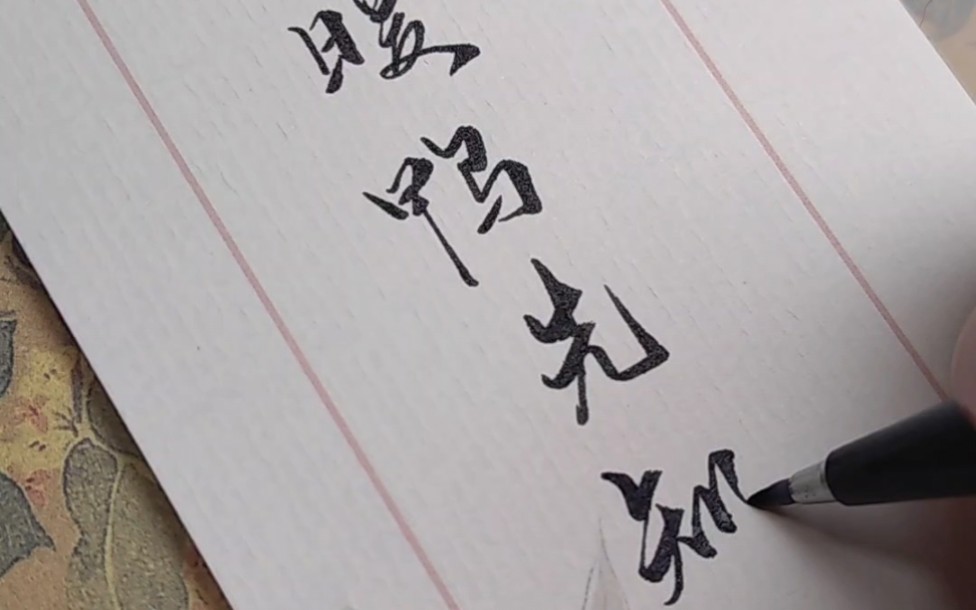 暖鸭先知